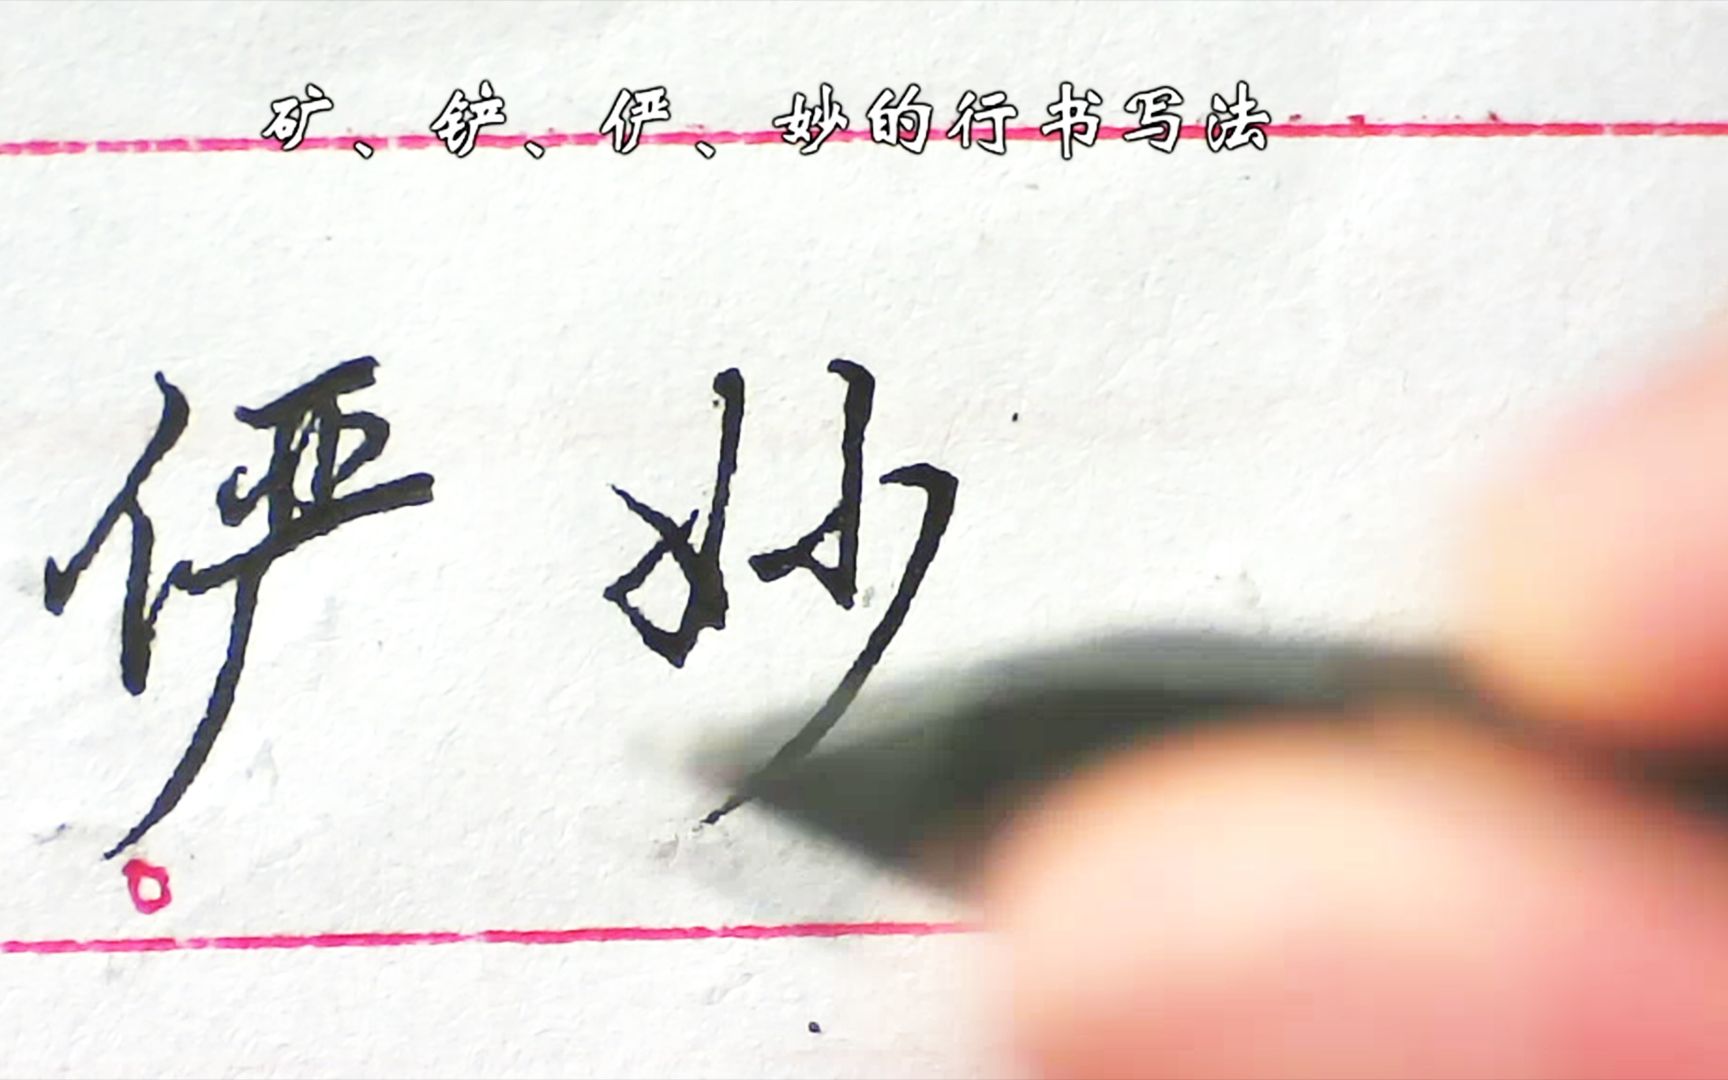 矿、铲、俨、妙的行书写法
俨 妙